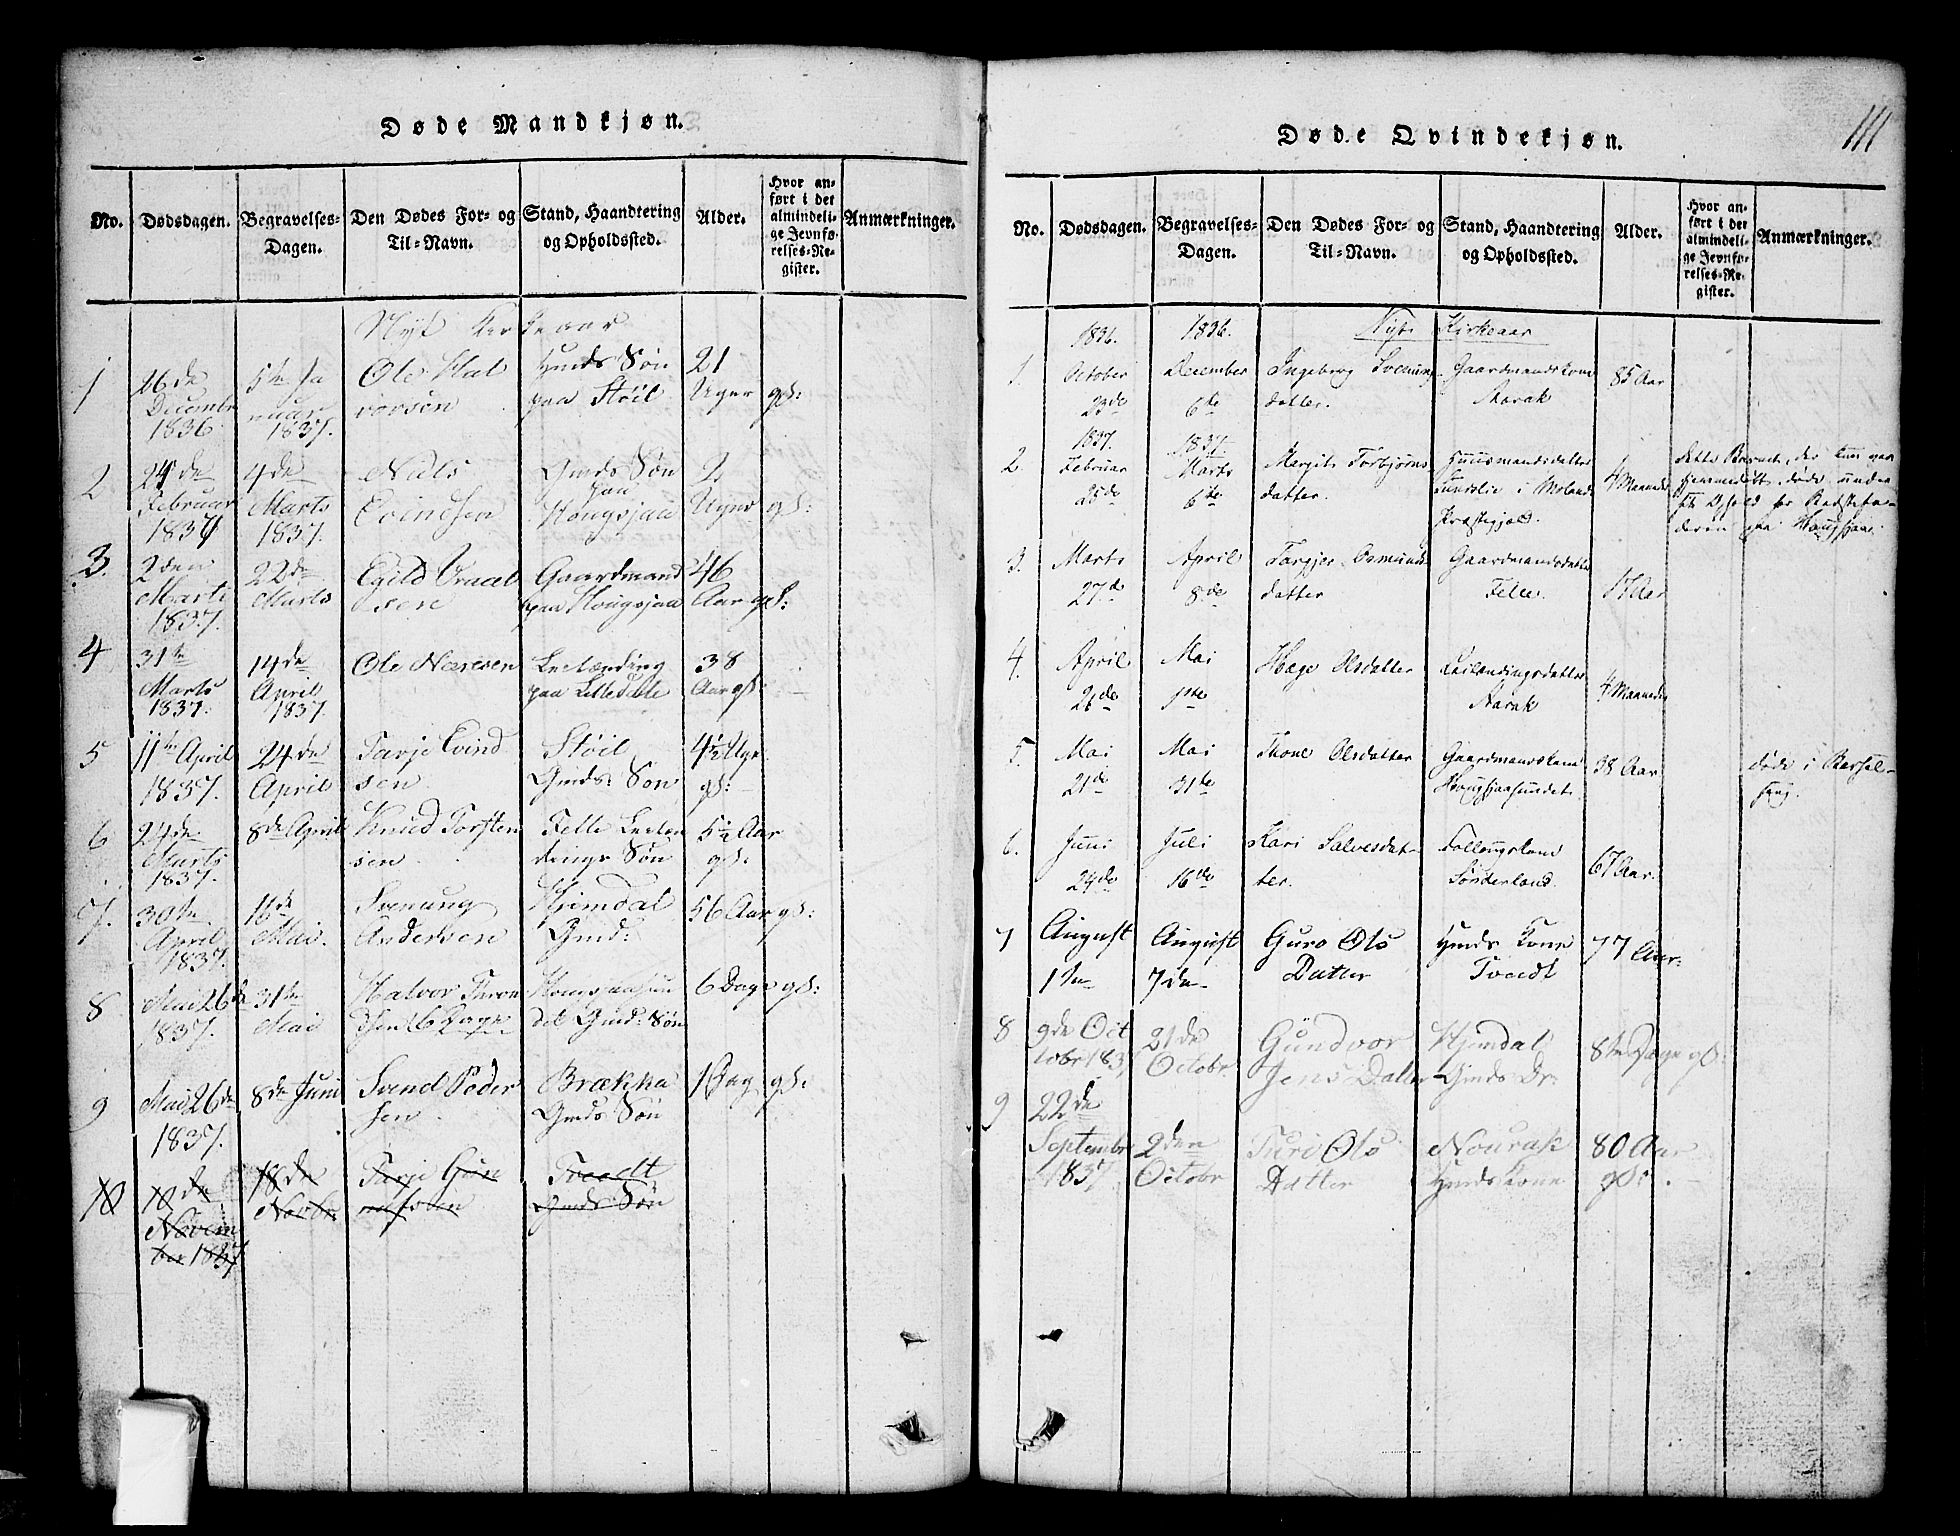 Døde Mandkjøn.
No. Dødsdagen. Begravelses-Dagen. Den Dødes For- og Til-Navn. Stand, Haandtering og Opholdssted. Alder. Hvor anført i det almindelige Jevnførelses-Register. Anmærkninger.
Nyt Kirkeaar
1 26de Decembr 1836 5te Januar 1837. Ole Halvorsen Hmds Søn paa Støil 21 Uger gl:
2 24de Februar 1837 4de Marts 1837. Niels Evindsen Gmds Søn paa Hougsjaa 2 Uger gl:
3. 2den Marts 1837. 22de Marts Egild Vraalsen Gaardmand paa Hougsjaa 46 Aar gl:
4 31te Marts 1837. 14de April 1837. Ole Næresen Leilænding paa 38 Aar gl:
5 11te April 1837. 24de April Tarje Evindsen Støil Gmds: Søn 4½ Uge gl:
6 24de Marts 1837. 8de April Knud Torstensen Felle Leilendings Søn 5½ Aar gl:
7. 30te April 1837. 16de Mai. Svenung Andersen Hjemdal Gmd: 56 Aar gl:
8 Mai 26de 1837. 31te Mai Halvor 6 Dage Hougsjaasundet Gmd: Søn 6 Dage gl:
9 Mai 26de 1837. 8de Juni Svend Pedersen Brækka Gmds Søn 1 Dag gl:
10 10de November 1837 18de Novbr Tarje Gunnulfsen Tveedt Gmds Søn
111
Døde Qvindekjøn.
No. Dødsdagen. Begravelses-Dagen. Den Dødes For- og Til-Navn. Stand, Haandtering og Opholdssted. Alder. Hvor anført i det almindelige Jevnførelses-Register. Anmærkninger.
1836. 1836. Nyt Kirkeaar
1. October 23de December 6te Ingeborg Svenungdatter. Gaardmandskone Aarak 85 Aar
1837. 1837.
2. Februar 25de Marts 6te Margit Torbjørnsdatter. Huusmandsdatter i Molands Præstegjeld. 4 Maaneder dette Barn, der kun var hjemmedøbt, døde under sit Ophold for Bedsteforælderen paa Hougsjaa.
3. Marts 27de April 8de Torgjer Osmundsdatter Gaardmandsdatter Felle. 17 Aar
4. April 26de Mai 1ste Hæge Olsdatter Leilendingsdatter Aarak 4 Maaneder
5. Mai 21de Mai 31te Thone Olsdatter Gaardmandskone Hougsjaasundet. 38 Aar døde i Barselseng.
6. Juni 24de Juli 16de Kari Salvesdatter. Sønderland. 67 Aar.
7 August 1ste August 7de Guro Ols Datter Hmds Kone Tveedt 77 Aar
8 9de Octobr 1837 21de Octobr Gundvor Jens Datter Hjemdal Gmds Dr: 8te Dage gl:
9 22de Septembr 1837 2den Octobr Turi Ols Datter Nourak Hmds Kone 80 Aar gl: